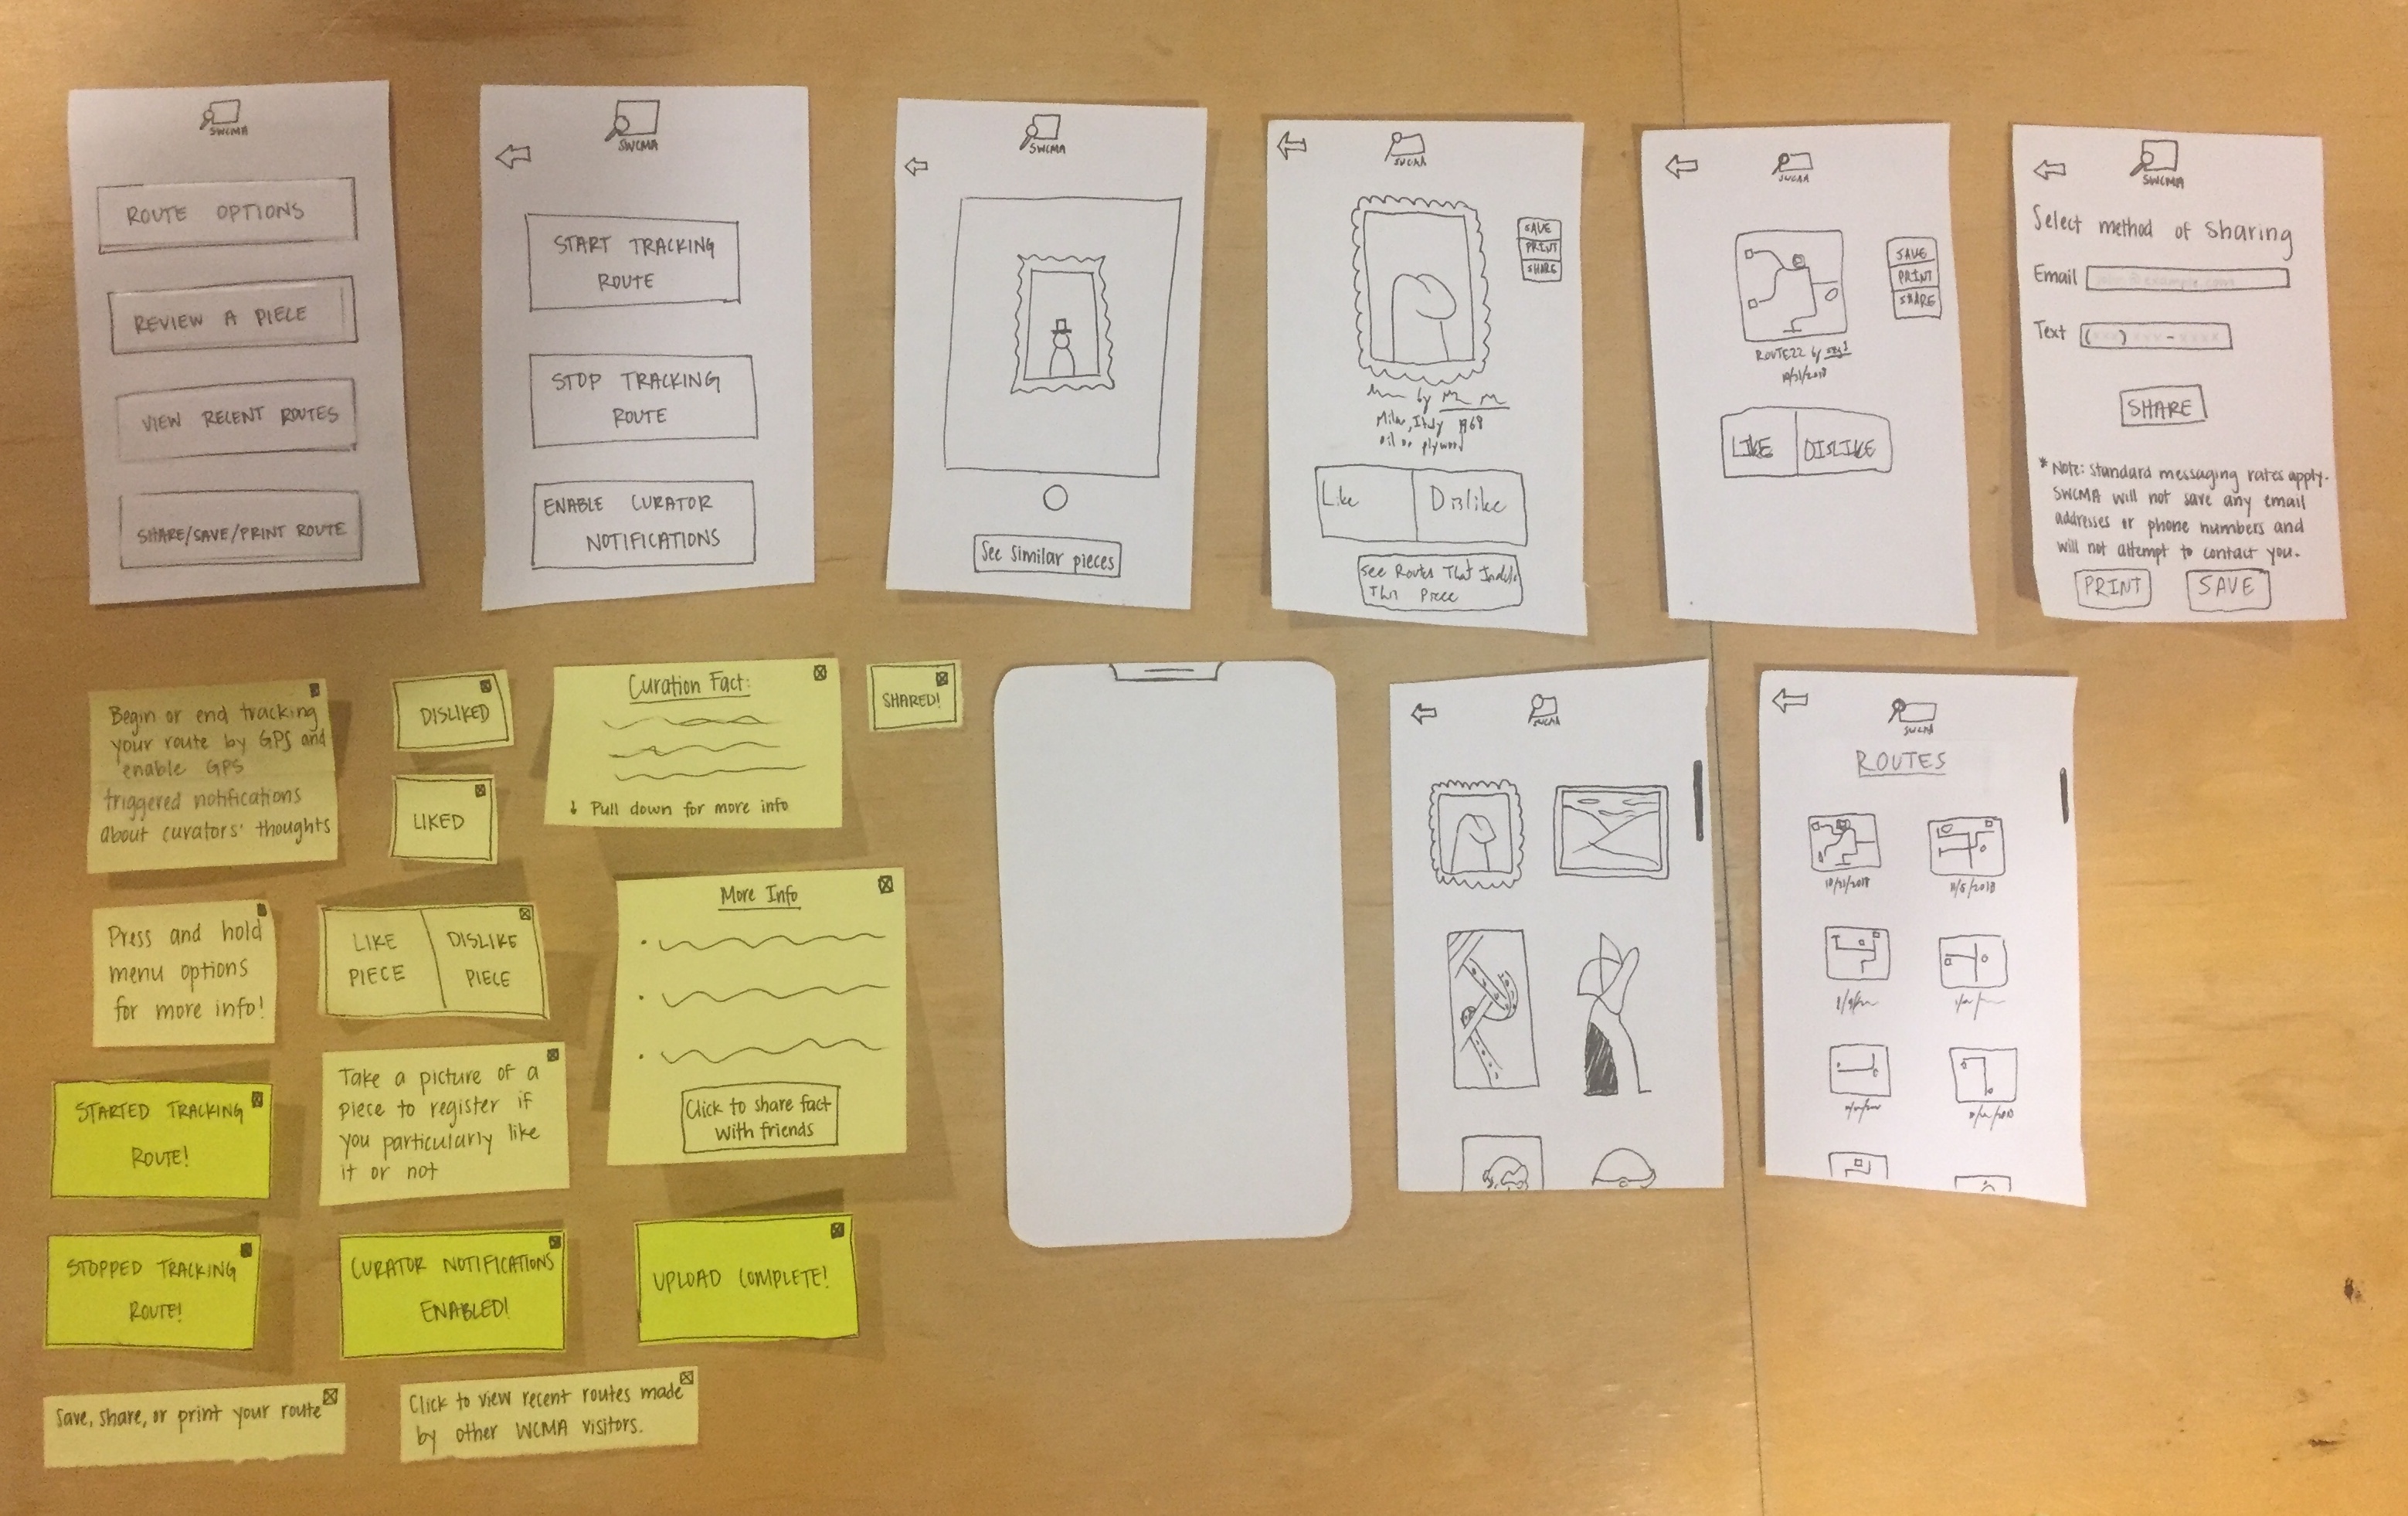 SWCMA
ROUTE OPTIONS
REVIEW A PIECE
VIEW RECENT ROUTES
SHARE/SAVE/PRINT ROUTE
SWCMA
START TRACKING
ROUTE
STOP TRACKING
ROUTE
ENABLE CURATOR
NOTIFICATIONS
SWCMA
See Similar pieces
SWCMA
SAVE
PRINT
SHARE
by
Milan, Italy 1968
oil on plywood
Like
Dislike
See Routes That Include
This Piece
SWCMA
SAVE
PRINT
SHARE
ROUTE22 by
10/21/2018
LIKE
DISLIKE
SWCMA
Select method of Sharing
Email
Text ( ) -
SHARE
* Note: Standard messaging rates apply.
SWCMA will not save any email
addresses or phone numbers and
will not attempt to contact you.
PRINT
SAVE
Begin or end tracking
your route by GPS and
enable GPS
triggered notifications
about curators' thoughts
DISLIKED
LIKED
Curation Fact:
↓ Pull down for more info
SHARED!
Press and hold
menu options
for more info!
LIKE
PIECE
DISLIKE
PIECE
More Info
Click to share fact
with friends
STARTED TRACKING
ROUTE!
Take a picture of a
piece to register if
you particularly like
it or not
STOPPED TRACKING
ROUTE!
CURATOR NOTIFICATIONS
ENABLED!
UPLOAD COMPLETE!
Save, share, or print your route
Click to view recent routes made
by other WCMA visitors.
SWCMA
SWCMA
ROUTES
10/21/2018
11/5/2018